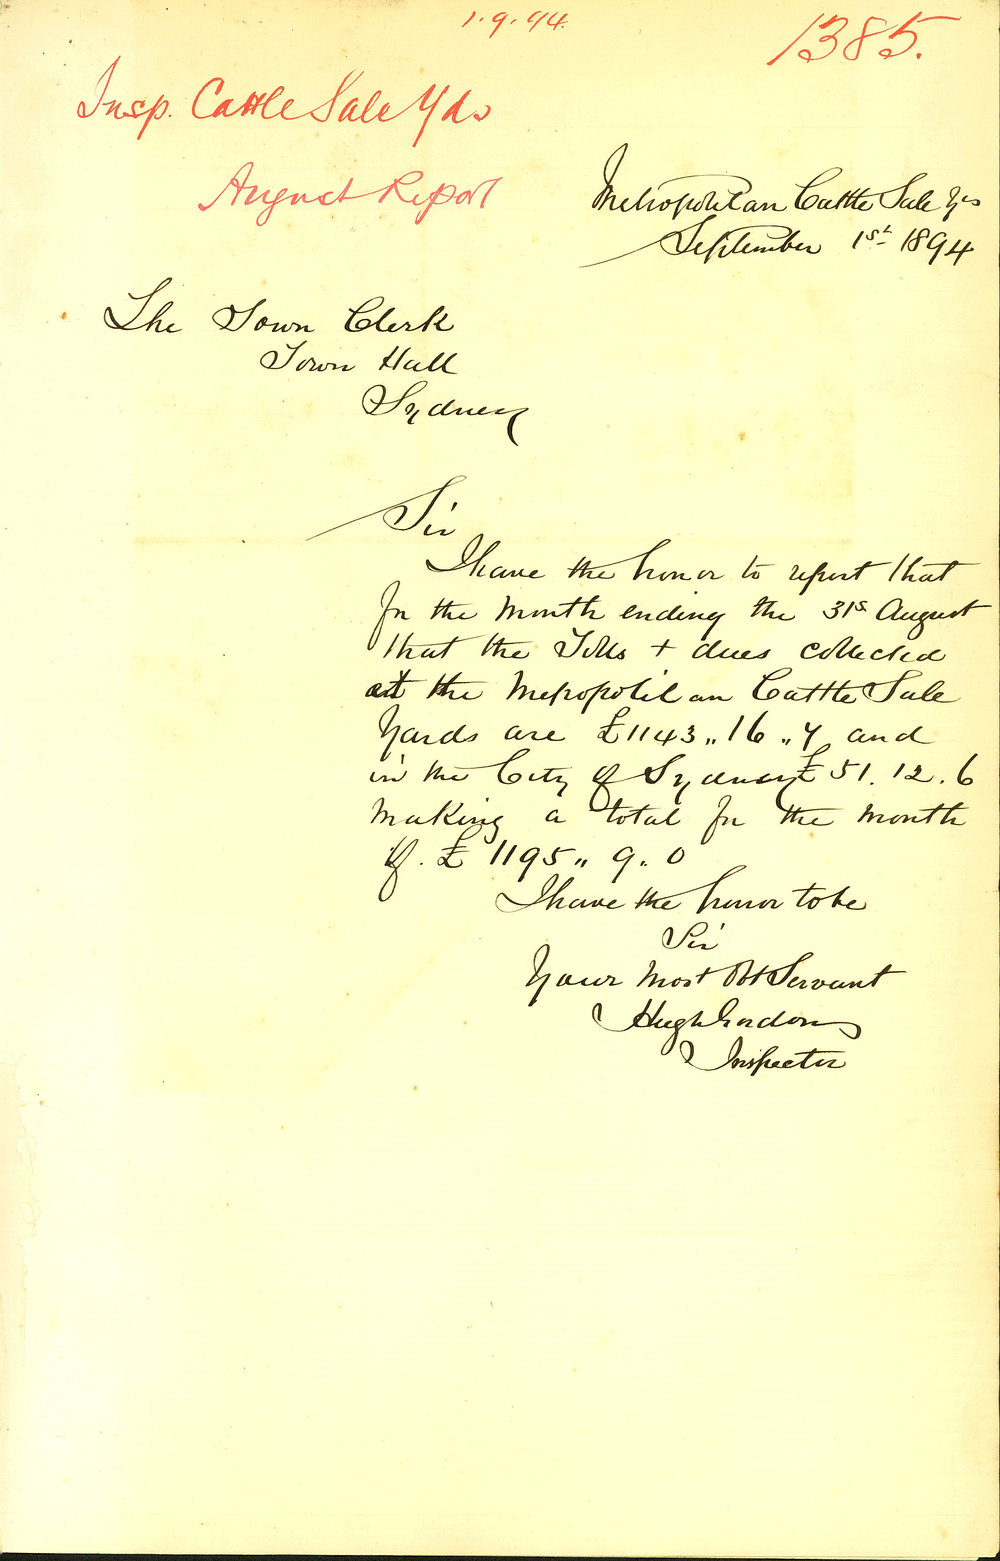 1.9.94.
1385.
Insp. Cattle Sale Yds
August Report
Metropolitan Cattle Sale Yds
September 1st 1894
The Town Clerk
Town Hall
Sydney
Sir
I have the honor to report that
for the month ending the 31st August
that the Tolls + dues collected
at the Metropolitan Cattle Sale
Yards are £1143,, 16 ,, 7 and
in the City of Sydney £51. 12. 6
making a total for the month
of. £ 1195,, 9. 0
I have the honor to be
Sir
Your most Obt Servant
Hugh Gordon
Inspector